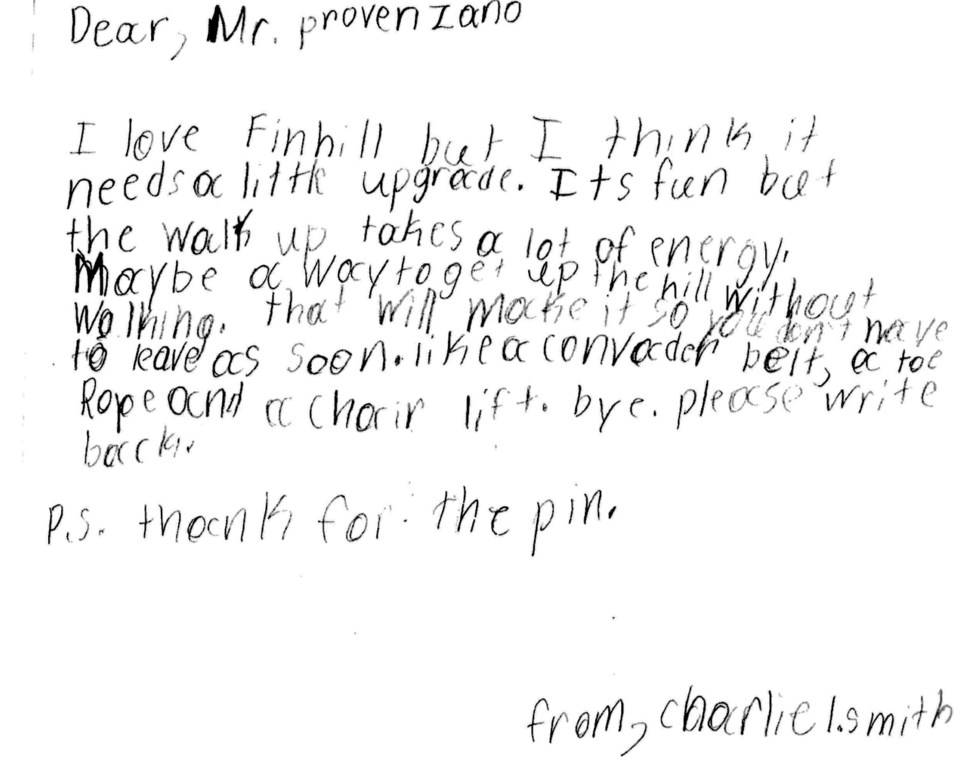 Dear, Mr. provenzano
I love Finhill but I think it
needs a little upgrade. Its fun but
the walk up takes a lot of energy.
Maybe a way to get up the hill without
Walking. that will make it so you don't have
to leave as soon. like a convader belt, a toe
Rope and a chair lift. bye. please write
back.
P.S. thank for the pin.
from, charlie l. smith